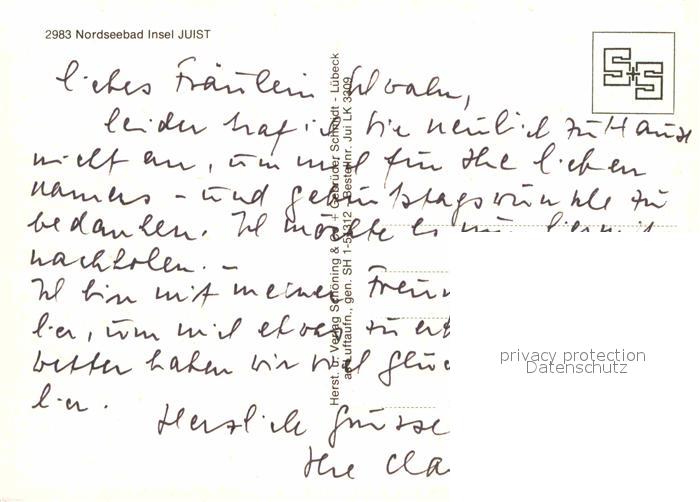 2983 Nordseebad Insel JUIST
S+S
liebes Fräulein
leider traf ich Sie neulich zu Hause
nicht an, um mich für Ihre lieben
namens - und geburtstagswünsche zu
bedanken. Ich möchte es nun hiermit
nachholen. –
Ich bin mit meiner
hier, um mich etwas zu
wetter haben wir viel
hier.
Herzliche Grüsse
Ihre
Herst. u. Verlag Schöning & Co + Gebrüder Schmidt - Lübeck
Luftaufn., gen. SH 1-51312 Bestellnr. Jui LK 3209
privacy protection
Datenschutz